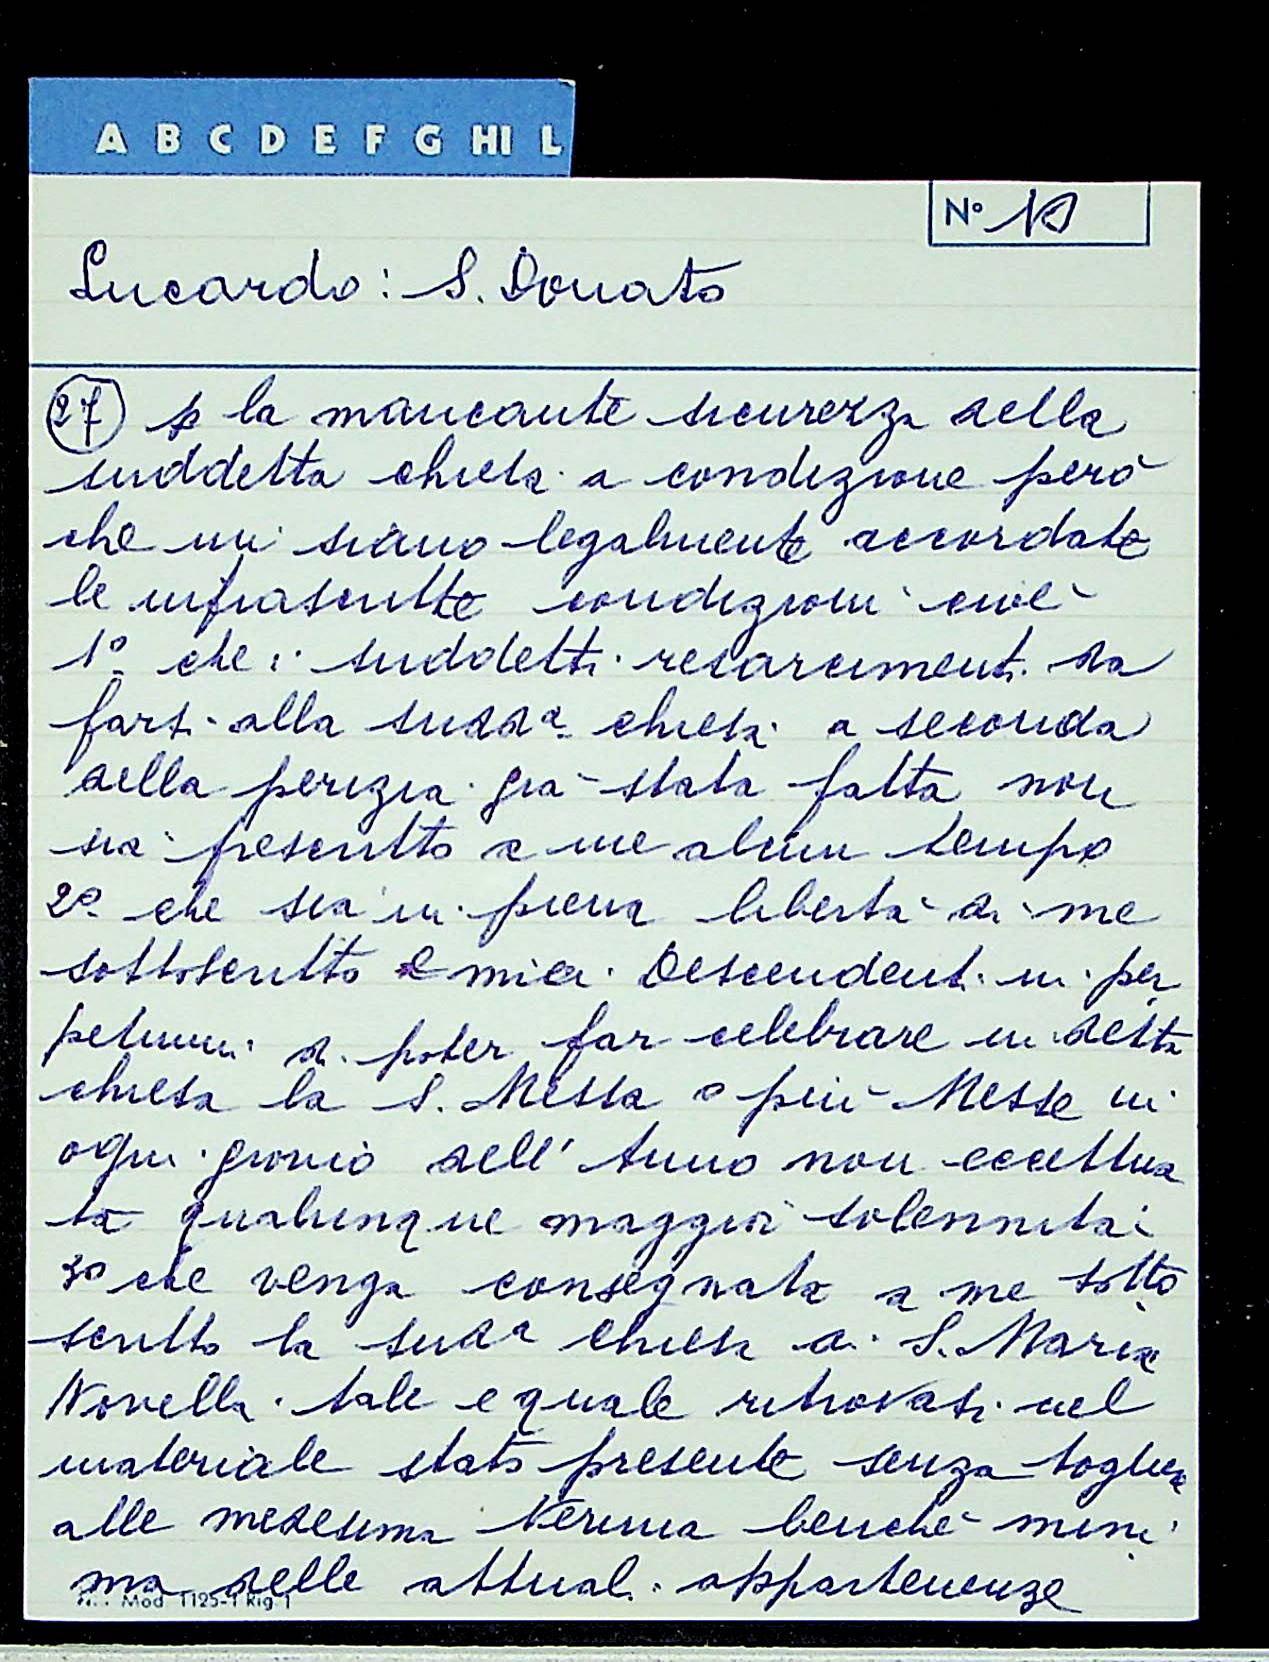 A B C D E F G HI L
Nº
Lucardo: S. Donato
27 p la mancante sicurezza della
suddetta chiesa a condizione però
che mi siano legalmente accordate
le infrascritte condizioni cioè
1º che i suddetti resarcimenti da
farsi alla sudda chiesa a seconda
della perizia già stata fatta non
sia prescritto a me alcun tempo
2º che sia in piena libertà di me
sottoscritto e miei Descendenti in per
petuum di poter far celebrare in detta
chiesa la S. Messa o più Messe in
ogni giorno dell' Anno non eccettua
ta qualunque maggior solennità
3º che venga consegnata a me sotto
scritto la sudda chiesa di S. Maria
Novella tale e quale ritrovasi nel
materiale stato presente senza toglier
alle medesima Veruna benchè mini
ma delle attuali appartenenze
Mod 1125-1 Rig. 1